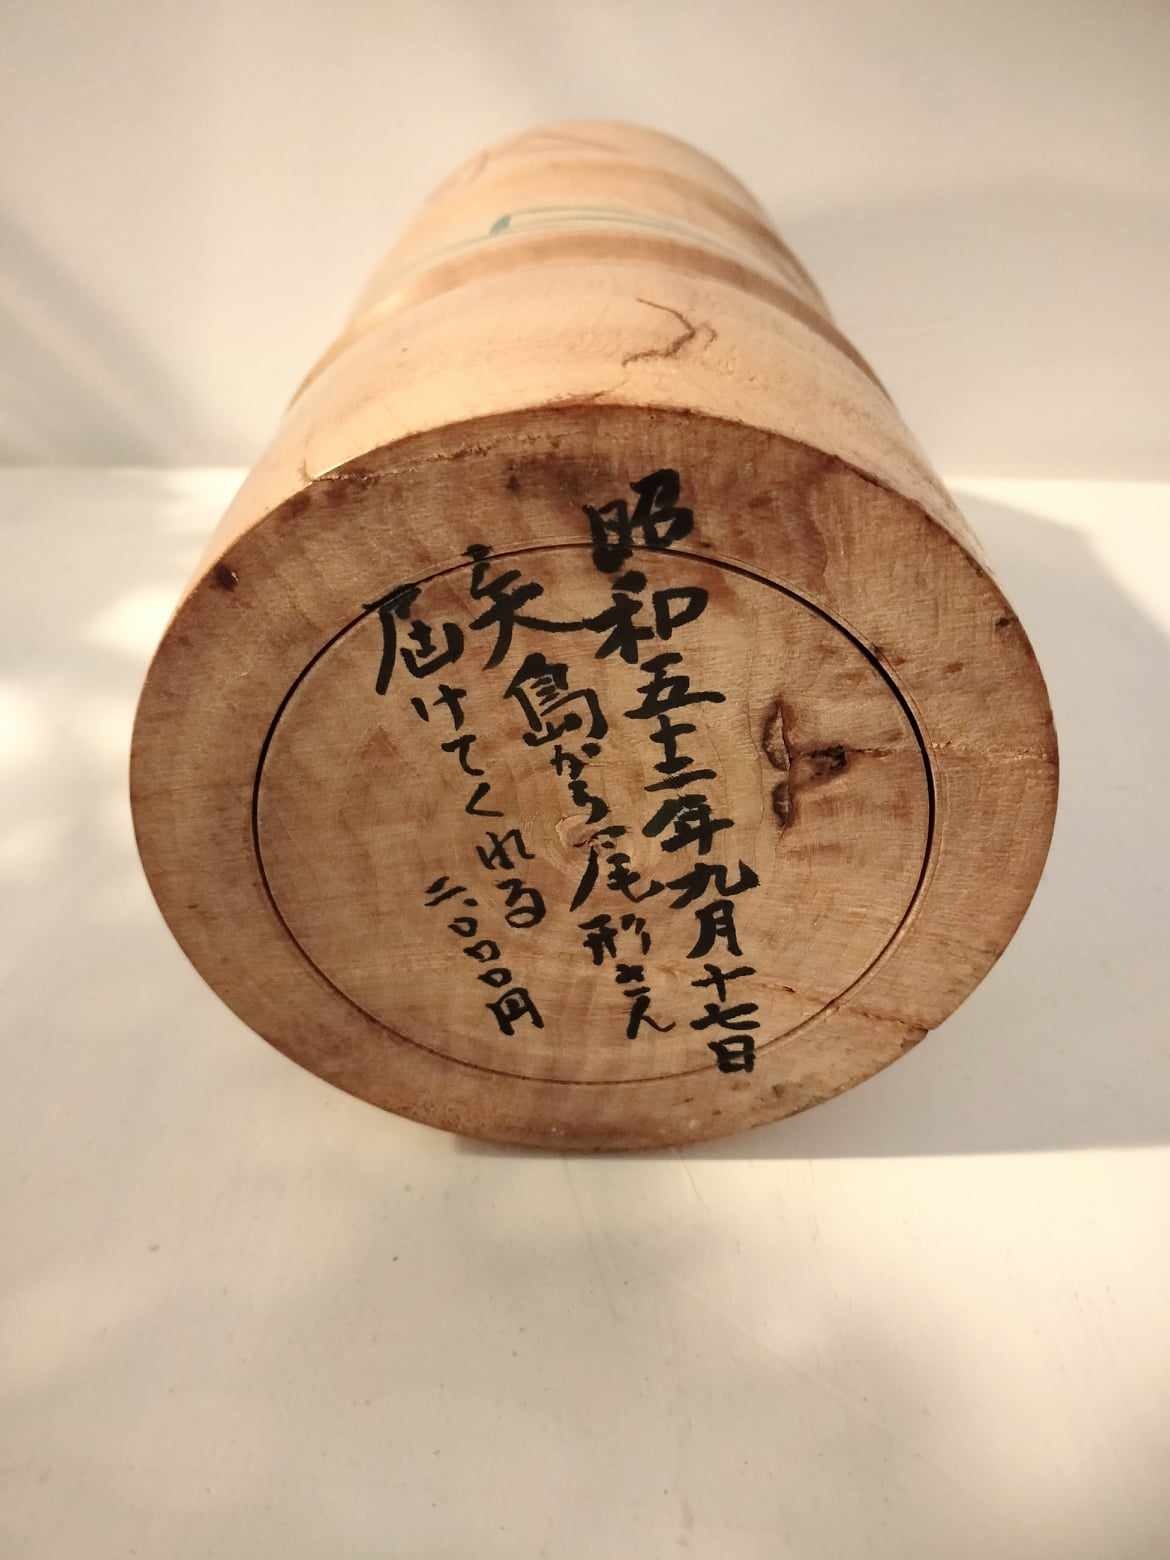 昭和五十二年九月十七日
矢島から尾形さん
届けてくれる
二、〇〇〇円